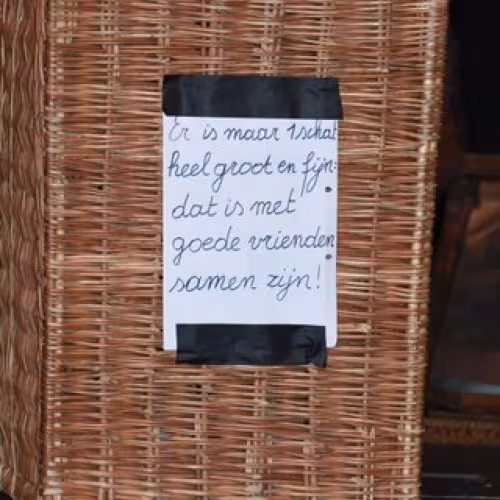 Er is maar 1 schat
heel groot en fijn:
dat is met
goede vrienden
samen zijn!